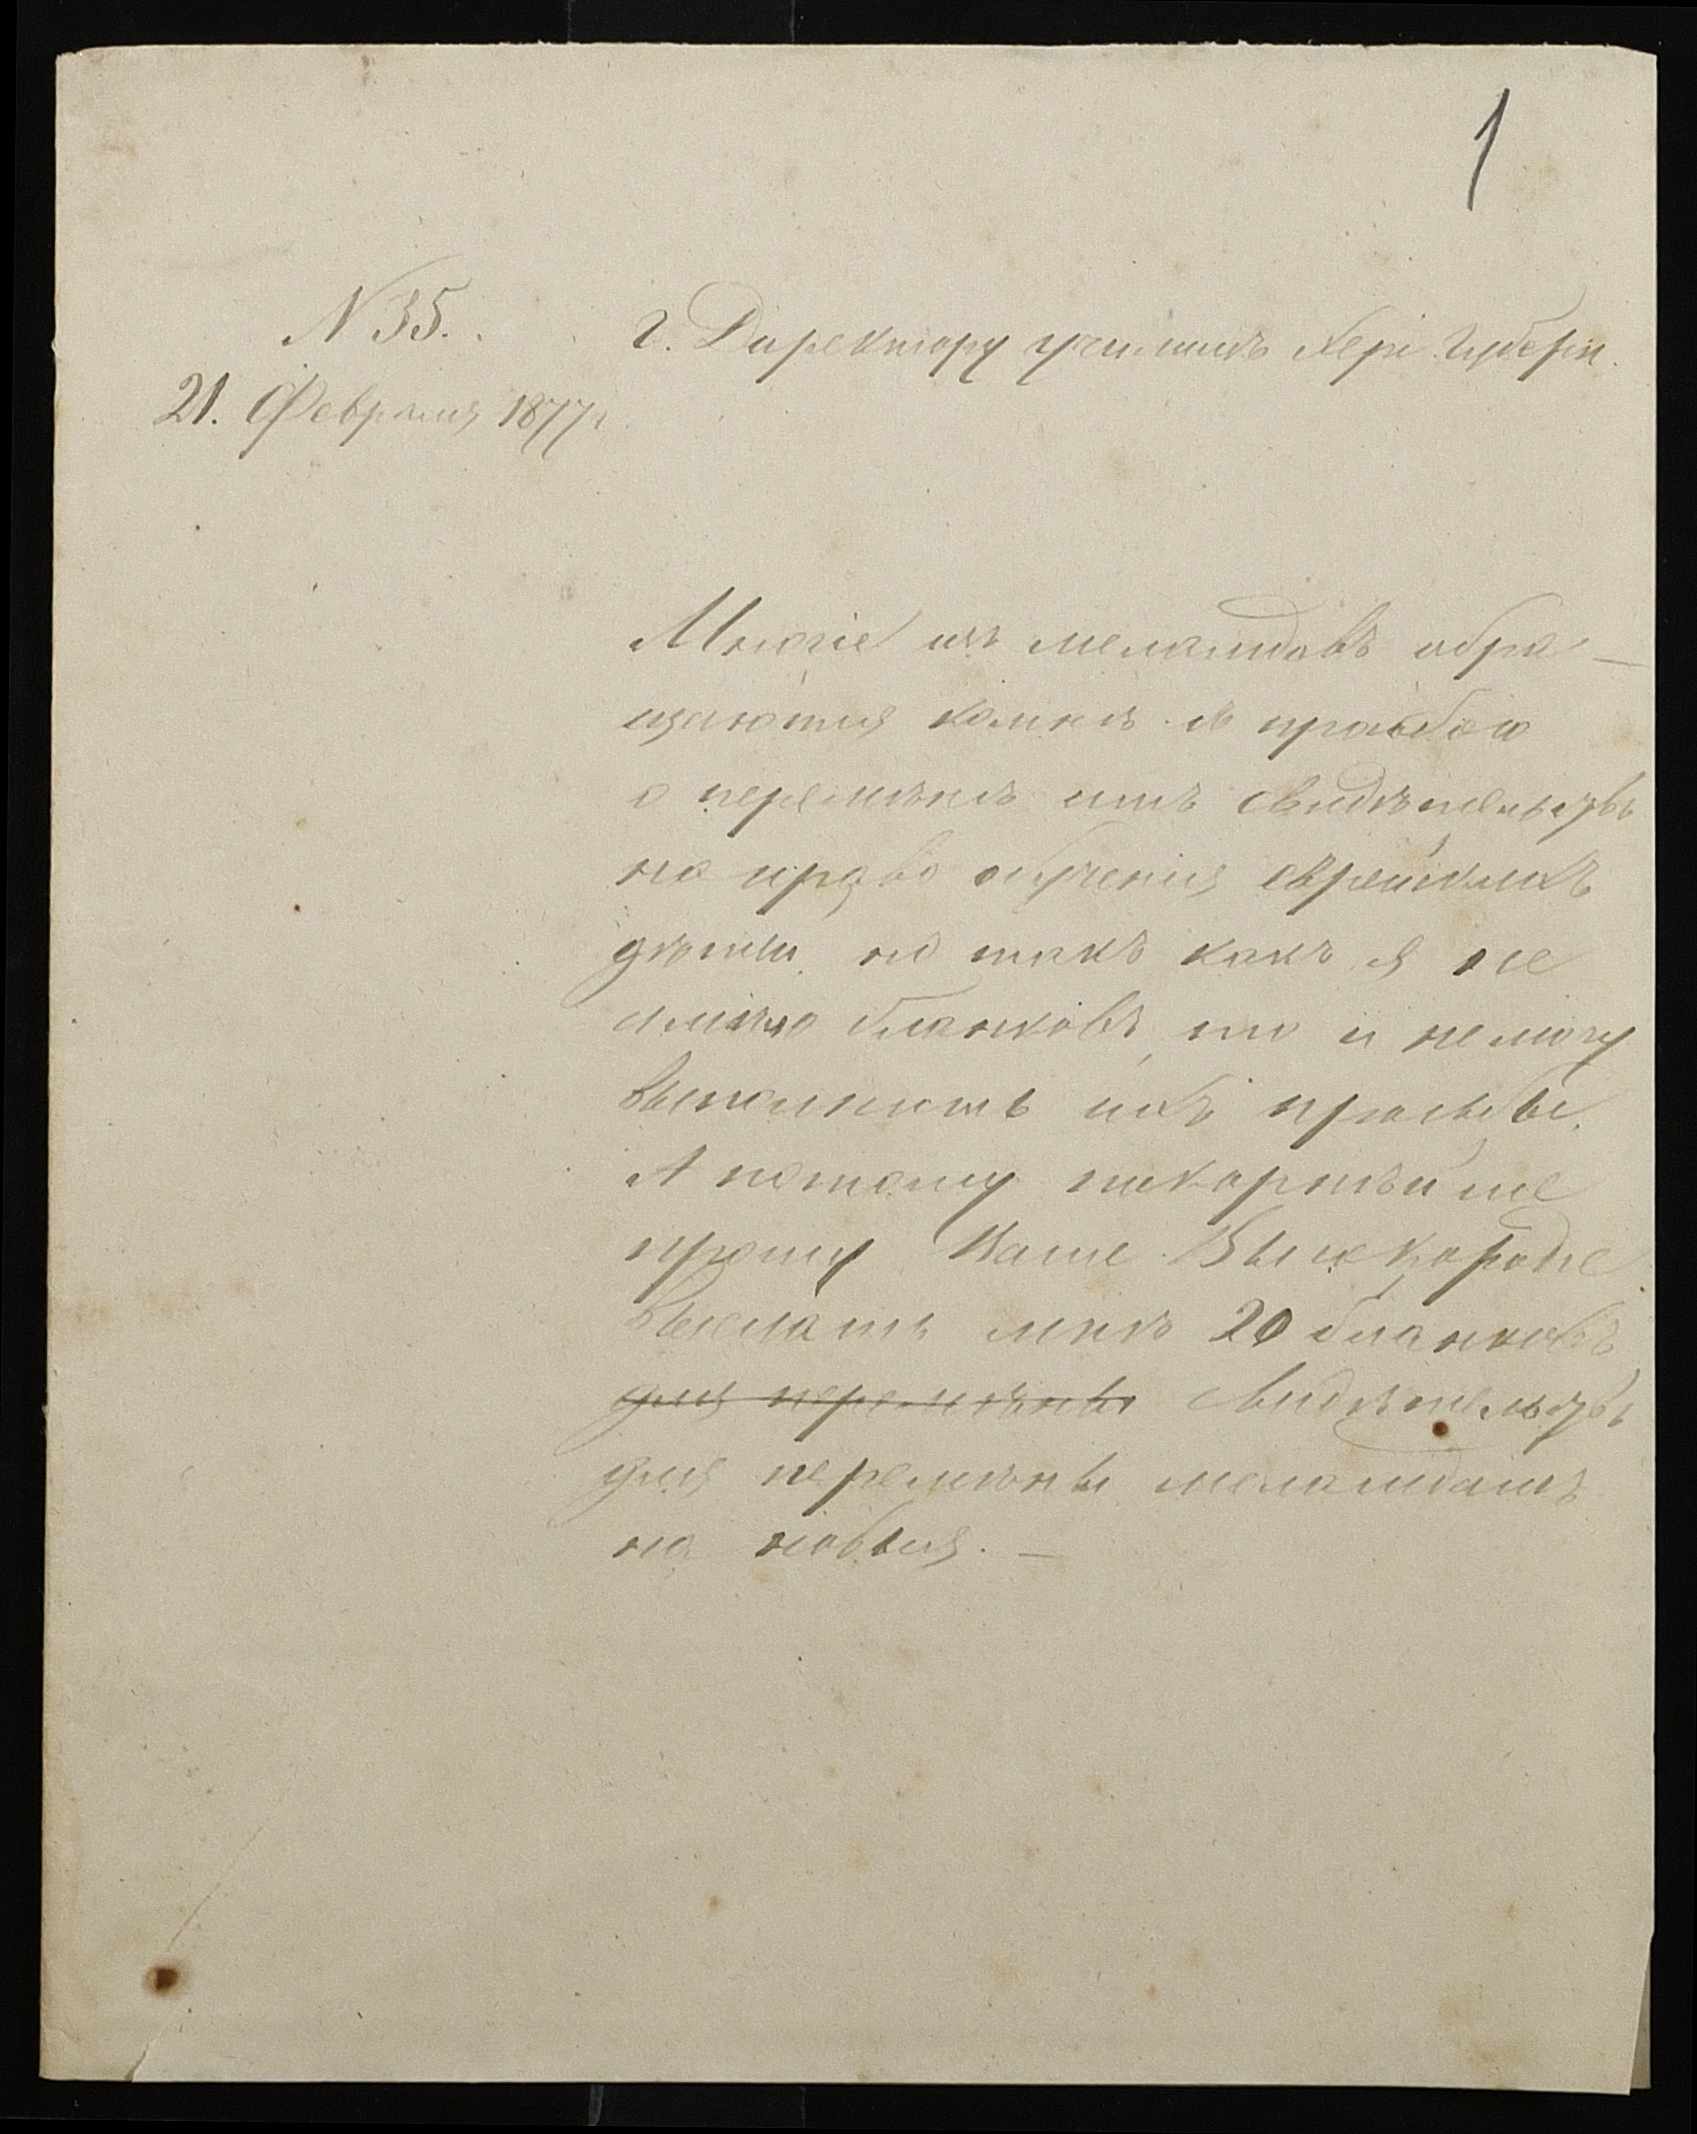 1
N 35.
г. Директору училищъ Херс. Губерн.
21. Февраля 1877 г.
Многіе изъ меламдовъ обра-
щаются комнѣ съ просьбою
о перемѣнѣ имъ свидѣтельствъ
на право обученія еврейскихъ
дѣтей, но такъ какъ я не
имѣю бланковъ, то и не могу
выполнить ихъ просьбы.
А потому покорнѣйше
прошу Ваше Высокородіе
выслать мнѣ 20 бланковъ
для перемѣны свидѣтельствъ
для перемѣны меламдамъ
на новыя. —